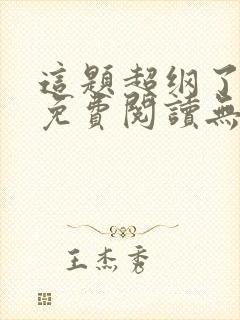 這題超纲了
免費閱讀無
王杰秀